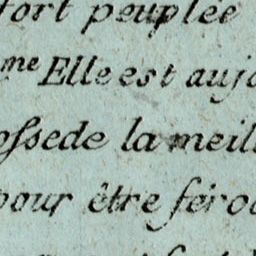 fort peuplée
me Elle est auj
ossede la meil
pour être féro